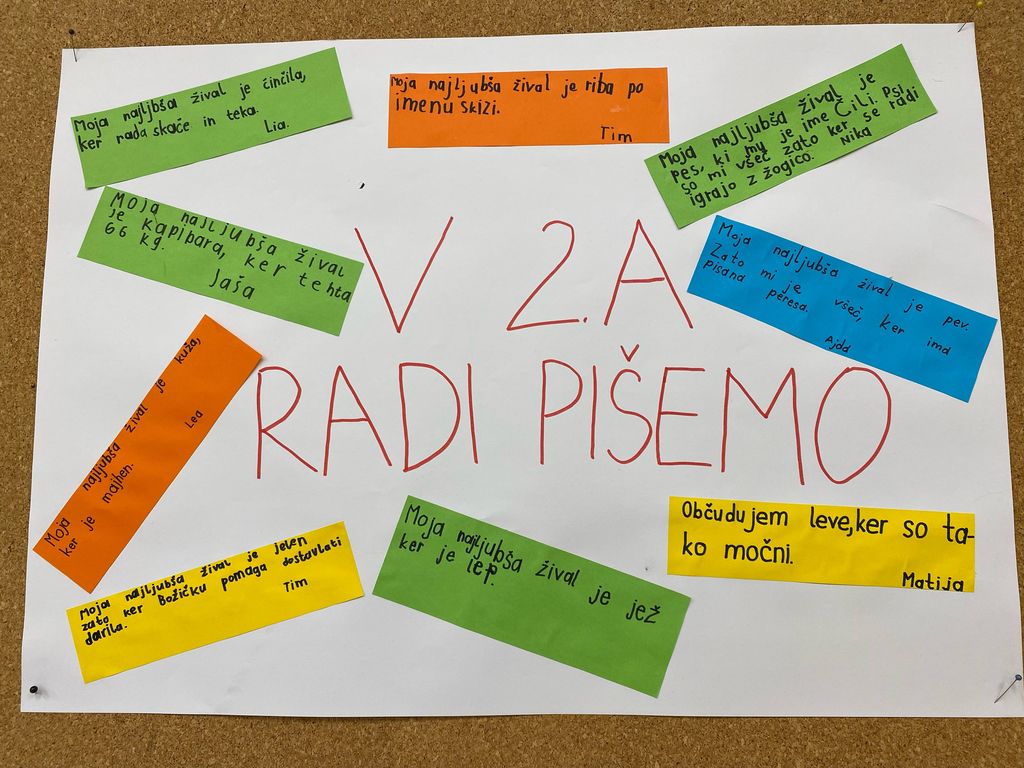 Moja najljbša žival je činčila,
ker rada skače in teka.
Lia.
Moja najljubša žival je riba po
imenu skizi.
Tim
Moja najljubša žival je
pes, ki mu je ime Čili. Psi
so mi všeč zato ker se radi
igrajo z žogico. Nika
MOJa najljubša žival
je kapibara, ker tehta
66 kg.
Jaša
V 2.A
RADI PIŠEMO
Moja najljubša žival je pev.
Zato mi je všeč, ker ima
pisana peresa.
Ajda
Moja najljubša žival je kuža,
ker je majhen.
Lea
Moja najljubša žival je jelen
zato ker Božičku pomaga dostavlati
darila.
Tim
Moja najljubša žival je jež
ker je lep.
Občudujem leve,ker so ta-
ko močni.
Matija